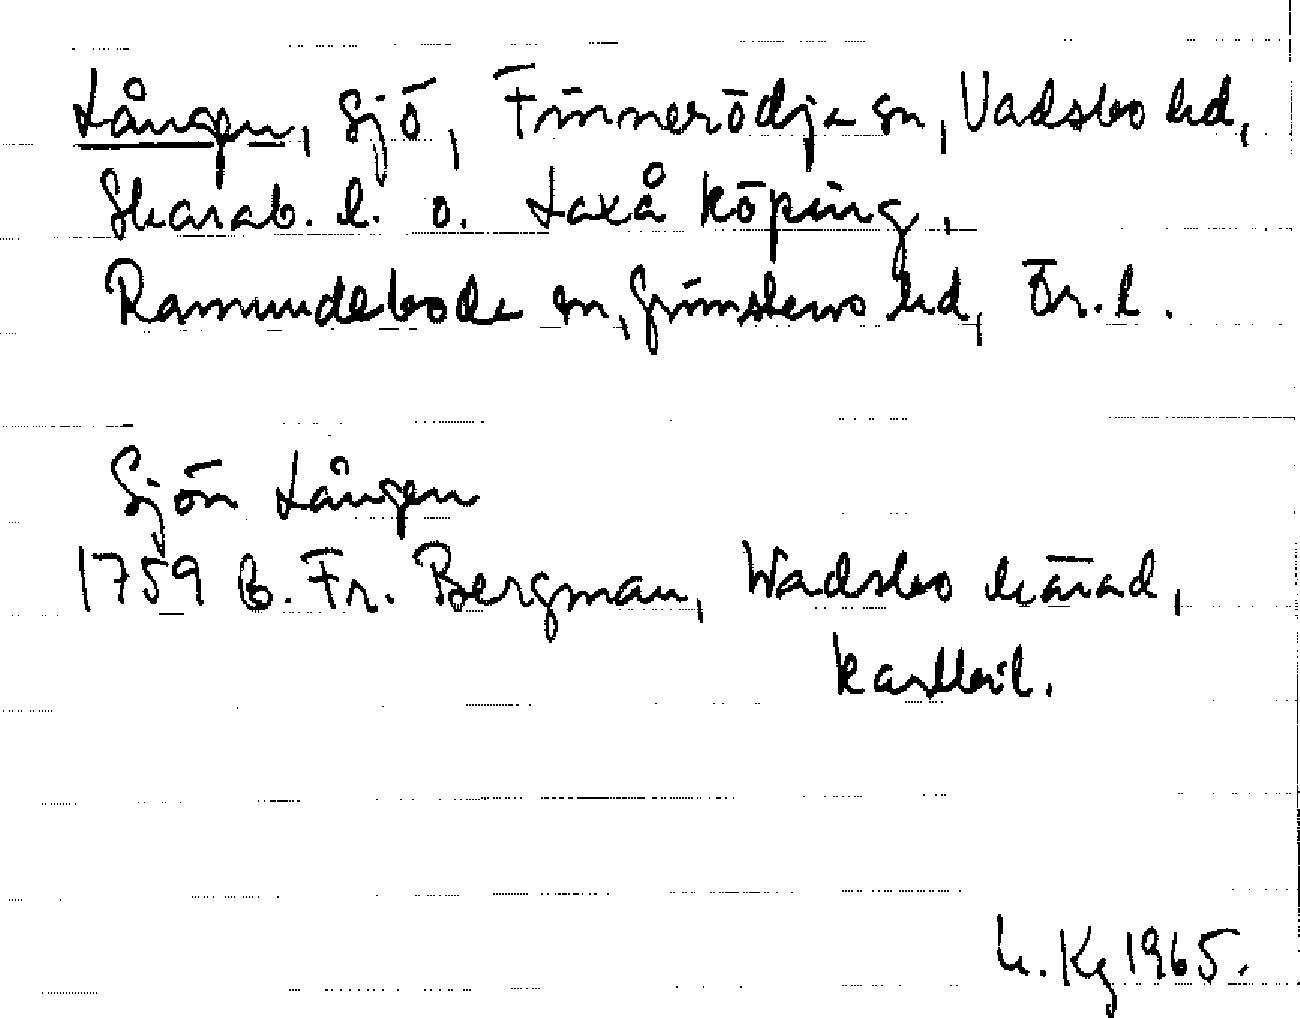 Lången, sjö, Finnerödja sn, Vadsbo hd,
Skarab. l. o. Laxå köping,
Ramundeboda sn, Grimstens hd, Ör. l.
Sjön Lången
1759 B. Fr. Bergman, Wadsbo härad,
kartbil.
H. Kg 1965.